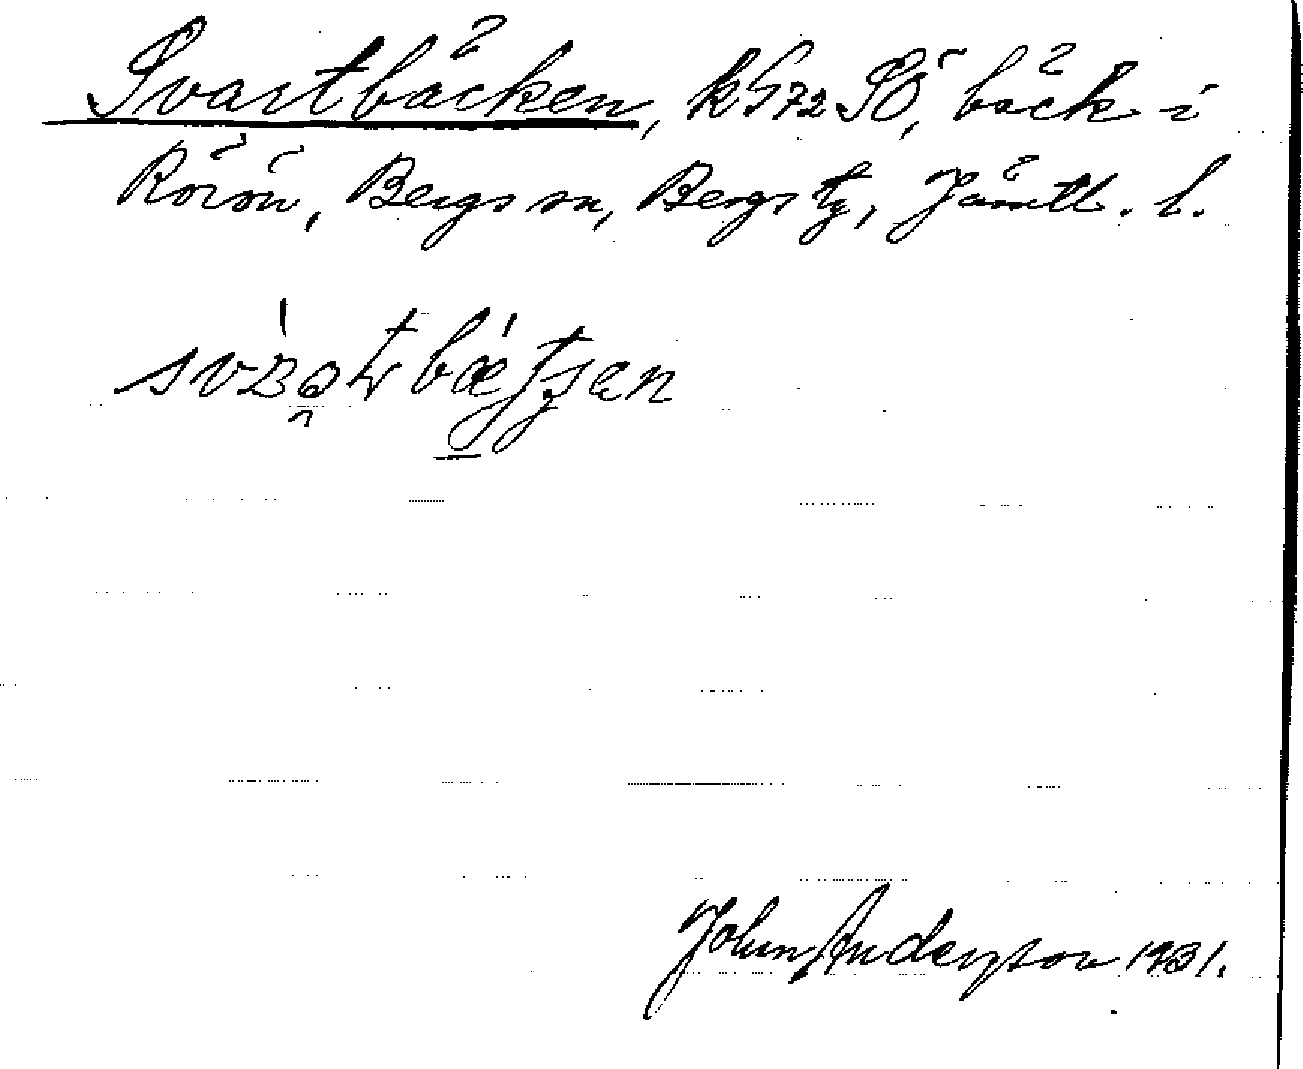 Svartbäcken, k572 SÖ, bäck i
Rörön, Bergs sn, Bergs tg, Jämtl. l.
John Andersson 1931.